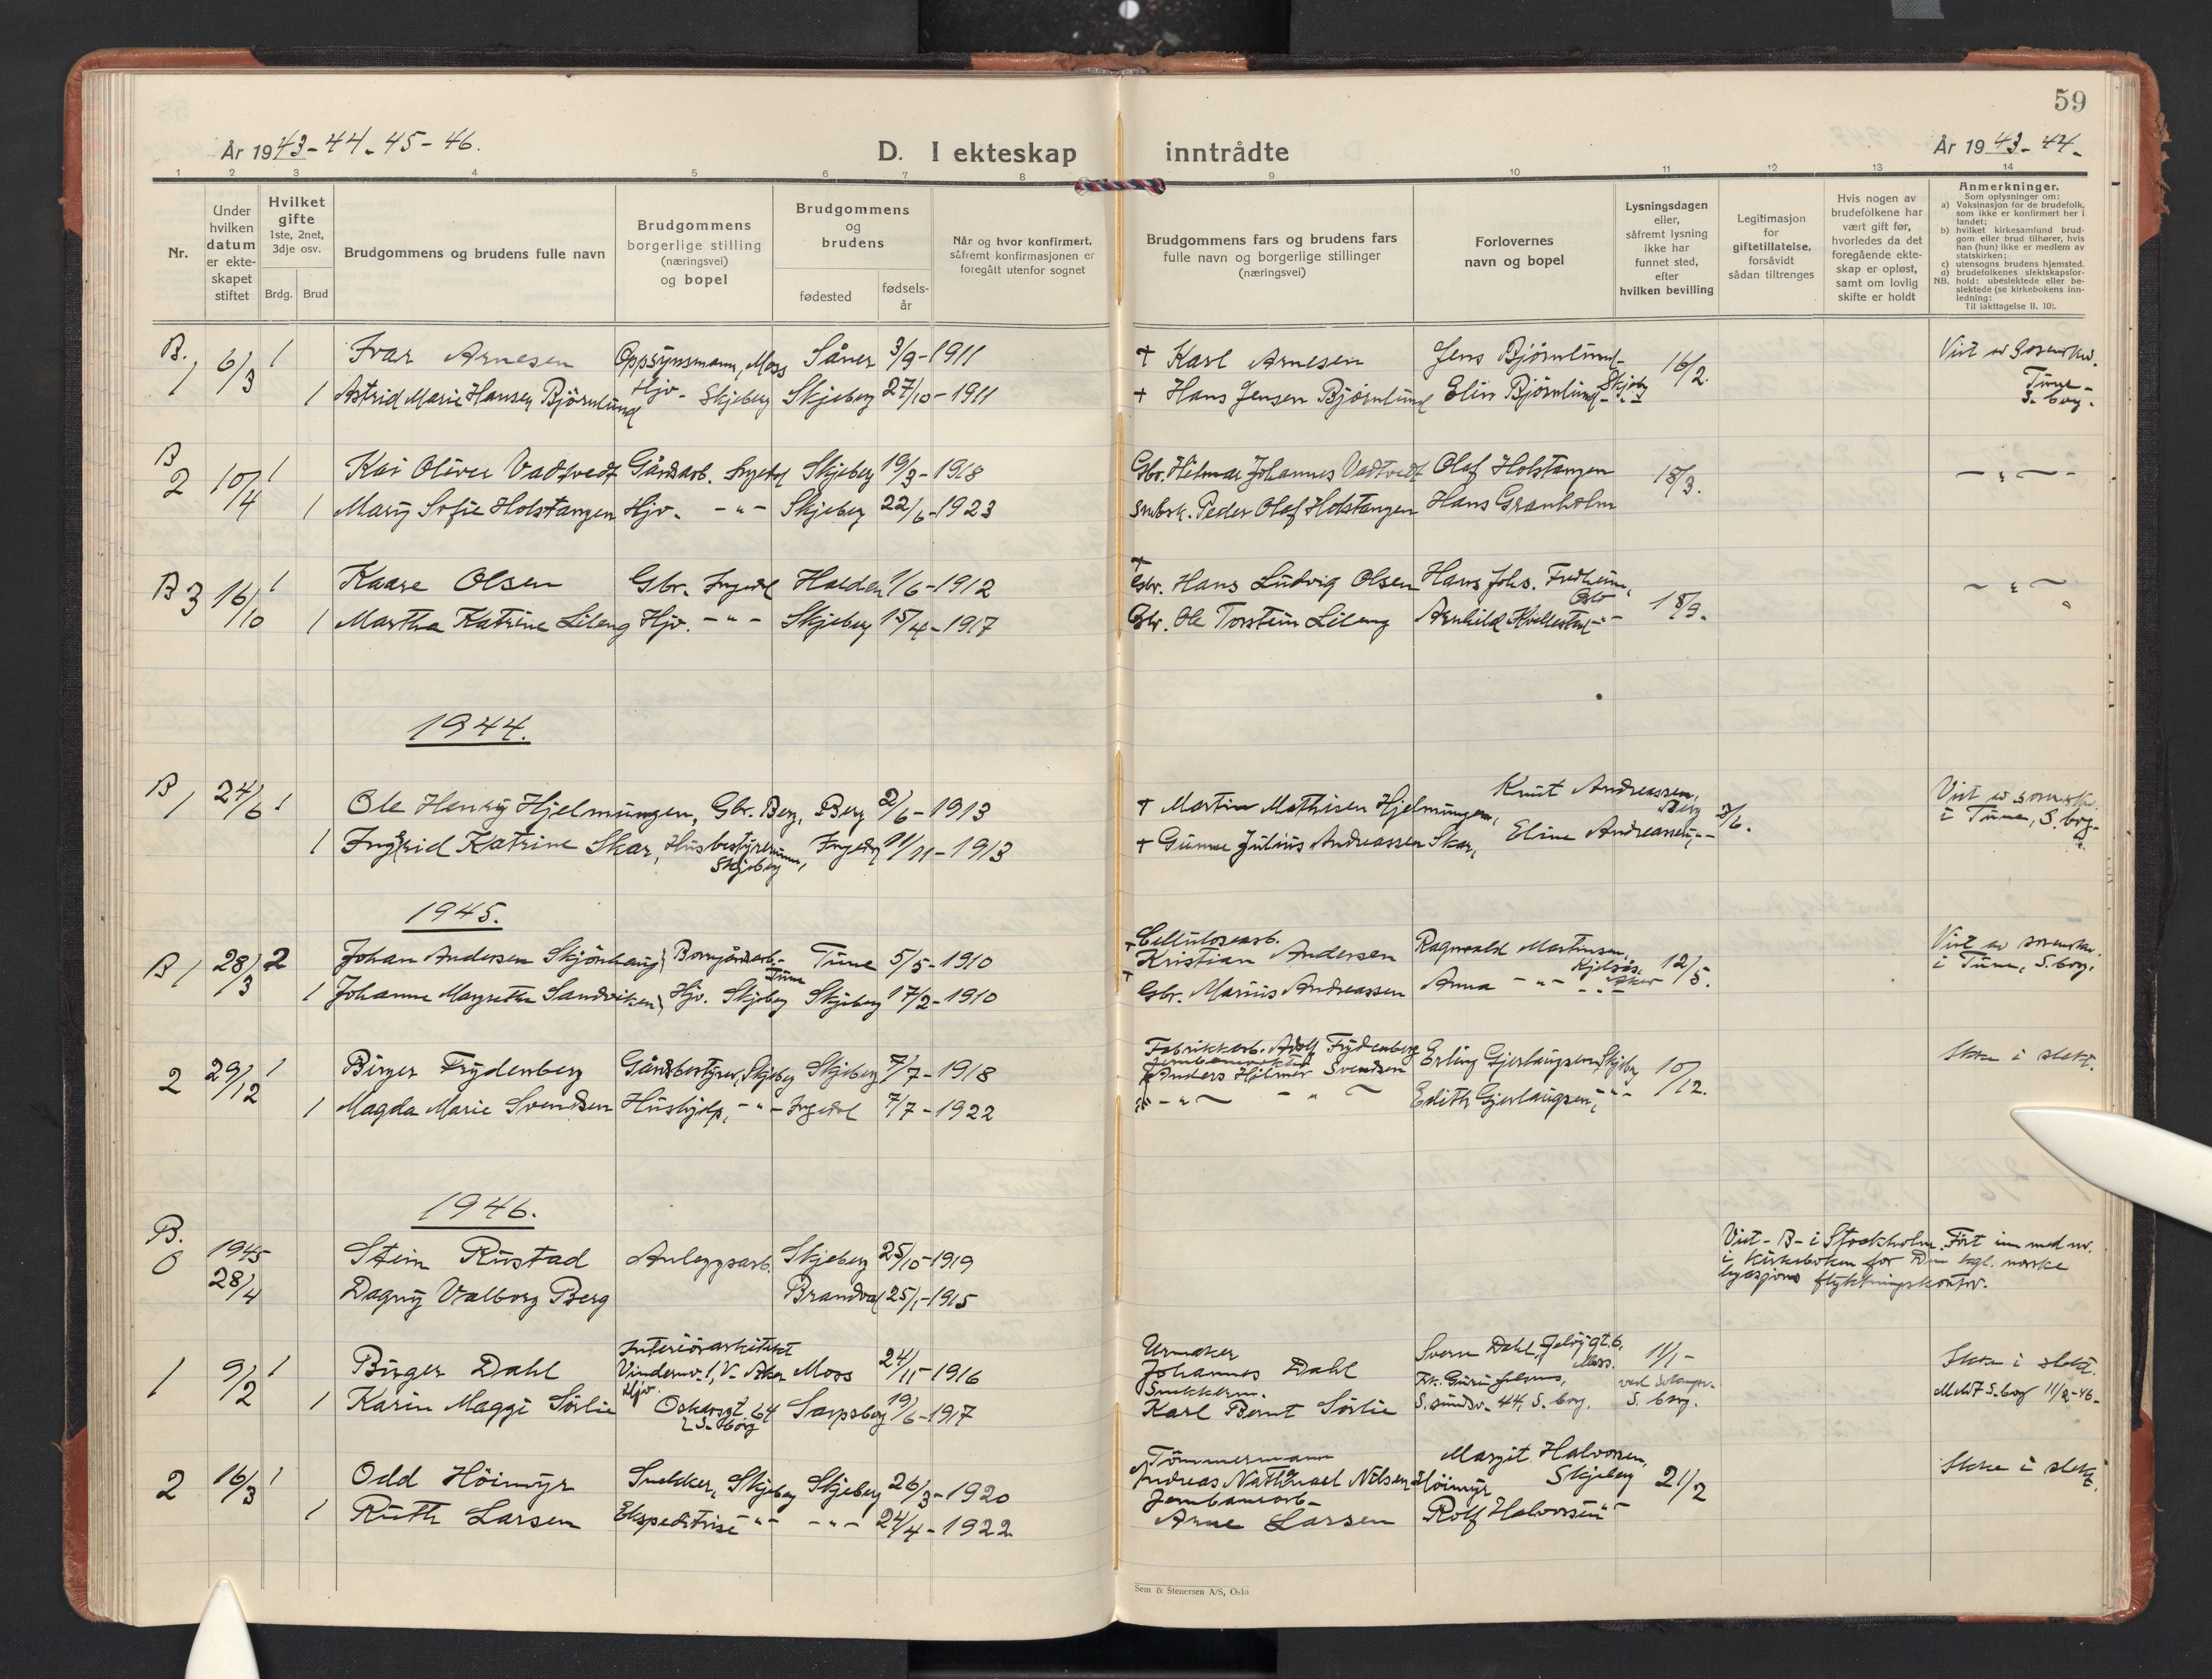 59
År 1943-44-45-46.
D. I ekteskap inntrådte
År 1943-44-
1 2 3 4 5 6 7 8 9 10 11 12 13 14
Nr.
Under hvilken datum er ekte-skapet stiftet
Hvilket gifte 1ste, 2net, 3dje osv.
Brdg. Brud
Brudgommens og brudens fulle navn
Brudgommens borgerlige stilling (næringsvei) og bopel
Brudgommens og brudens
fødested
fødsels-år
Når og hvor konfirmert, såfremt konfirmasjonen er foregått utenfor sognet
Brudgommens fars og brudens fars fulle navn og borgerlige stillinger (næringsvei)
Forlovernes navn og bopel
Lysningsdagen eller, såfremt lysning ikke har funnet sted, efter hvilken bevilling
Legitimasjon for giftetillatelse, forsåvidt sådan tiltrenges
Hvis nogen av brudefolkene har vært gift før, hvorledes da det foregående ekte-skap er opløst, samt om lovlig skifte er holdt
Anmerkninger.
Som oplysninger om:
a) Vaksinasjon for de brudefolk, som ikke er konfirmert her i landet;
b) hvilket kirkesamfund brud-gom eller brud tilhører, hvis han (hun) ikke er medlem av statskirken;
c) utensogns brudens hjemsted.
d) brudefolkenes slektskapsfor-
NB. hold: ubeslektede eller be-slektede (se kirkebokens inn-ledning:
Til iakttagelse II. 10).
B. 1 6/3 1 Ivar Arnesen Oppsynsmann, Moss Såner 3/9-1911 † Karl Arnesen Jens Bjørnlund- 16/2. Viet av sorenskr.
1 Astrid Marie Hansen Bjørnlund Hjv. Skjeberg Skjeberg 27/10-1911 † Hans Jensen Bjørnlund Elin Bjørnlund Skjeby Tune- S.borg.
B 2 10/4 1 Kai Oliver Vadtvedt Gårdsarb. Ingedal Skjeberg 19/3-1918 Gbr. Hilmar Johannes Vadtvedt Olaf Holstangen 18/3. - " -
1 Mary Sofie Holstangen Hjv. - " - Skjeberg 22/6-1923 Småbrk. Peder Olaf Holstangen Hans Granholm
B 3 16/10 1 Kaare Olsen Gbr. Ingedal Halden 1/6-1912 † Gbr. Hans Ludvig Olsen Hans Johs. Fredheim, Oslo 18/9. - " -
1 Martha Katrine Lileng Hjv. - " - Skjeberg 15/4-1917 Gbr. Ole Torstein Lileng Arnhild Kvillestad - " -
1944.
B 1 24/6 1 Ole Henry Hjelmungen, Gbr. Berg, Berg 2/6-1913 † Martin Mathisen Hjelmungen, Knut Andreassen, Berg 3/6. Viet av sorenskr.
1 Ingrid Katrine Skar, Husbestyrerinne, Skjeberg Ingedal 11/11-1913 † Gunne Julius Andreassen Skar, Eline Andreassen, - " - i Tune, S.borg-
1945.
B 1 28/3 2 Johan Andersen Skjönhaug, Borregårdsarb.- Tune Tune 5/5-1910 † Cellulosearb. Kristian Andersen Ragnvald Martinsen, Kjelsås, 12/5. Viet av sorenskr.
1 Johanne Margrethe Sandviken, Hjv. Skjeberg Skjeberg 17/2-1910 † Gbr. Marius Andreassen Anna - " - Aker i Tune, S.borg.
2 29/12 1 Birger Frydenberg Gårdsbestyrer, Skjeberg Skjeberg 7/7-1918 Fabrikkarb. Adolf Frydenberg Erling Gjerlaugsen, Skjeby 10/12. Ikke i slekt.
1 Magda Marie Svendsen Hushjelp, - " - Ingedal 7/7-1922 Anders Hilmer Svendsen Edith Gjerlaugsen, - " -
1946.
B. 0 1945 28/4 Stein Rustad Anleggsarb. Skjeberg 25/10-1919 Viet - B - i Stockholm. Fört inn med nr.
Dagny Valborg Berg Brandval 25/1-1915 i kirkeboken for Den kgl. norske
legasjons flyktningskontor.
1 9/2 1 Birger Dahl Interiörarkitekt Vindernv. 1, V. Aker Moss 24/11-1916 Urmaker Johannes Dahl Svern Dahl, Jelöygt. 6, Moss. 11/1- Ikke i slekt.
1 Karin Maggi Sörlie Hjv. Oscarsgt. 64 S.borg Sarpsborg 19/6-1917 Snekkerm. Karl Bernt Sörlie S.sundsv. 44, S.borg. S.borg. Meldt S.borg 11/2-46-
2 16/3 1 Odd Höimyr Snekker, Skjeberg Skjeberg 26/3-1920 Tömmermann Andreas Nathanael Nilsen Höimyr Margit Halvorsen, Skjeberg 21/2 Ikke i slekt.
1 Ruth Larsen Ekspeditrise - " - - " - 24/4-1922 Jernbanearb- Arne Larsen Rolf Halvorsen - " -
Sem & Stenersen A/S, Oslo